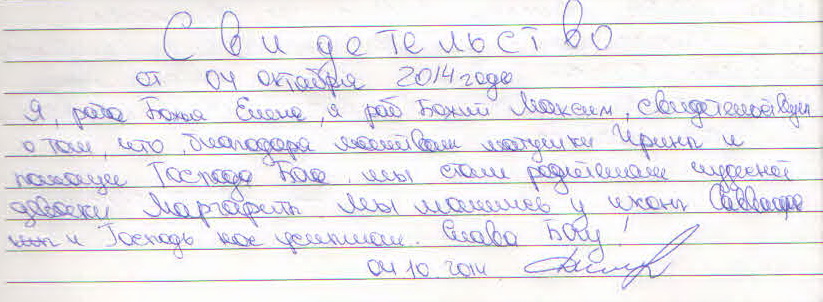 Свидетельство
от 04 октября 2014 года
Я, раба Божья Елена, я раб Божий Максим, свидетельствуем
о том, что благодаря молитвам матушки Ирины и
помощи Господа Бога мы стали родителями чудесной
девочки Маргариты Мы молились у иконы
и Господь нас услышал. Слава Богу!
04.10.2014